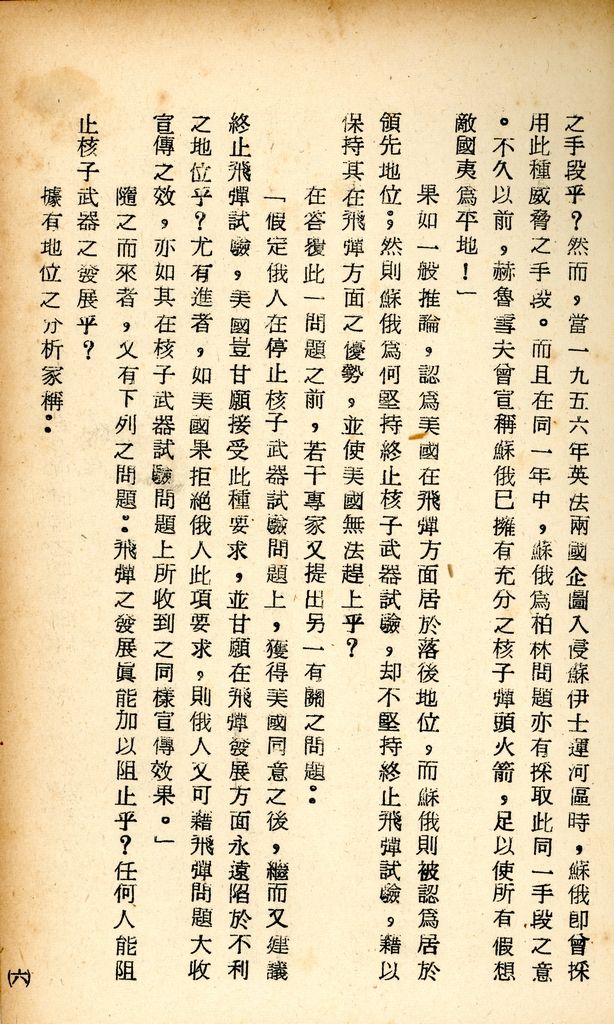 之手段乎？然而，當一九五六年英法兩國企圖入侵蘇伊士運河區時，蘇俄卽曾採
用此種威脅之手段。而且在同一年中，蘇俄爲柏林問題亦有採取此同一手段之意
。不久以前，赫魯雪夫曾宣稱蘇俄已擁有充分之核子彈頭火箭，足以使所有假想
敵國夷爲平地！」
果如一般推論，認爲美國在飛彈方面居於落後地位，而蘇俄則被認爲居於
領先地位；然則蘇俄爲何堅持終止核子武器試驗，却不堅持終止飛彈試驗，藉以
保持其在飛彈方面之優勢，並使美國無法趕上乎？
在答覆此一問題之前，若干專家又提出另一有關之問題：
「假定俄人在停止核子武器試驗問題上，獲得美國同意之後，繼而又建議
終止飛彈試驗，美國豈甘願接受此種要求，並甘願在飛彈發展方面永遠陷於不利
之地位乎？尤有進者，如美國果拒絕俄人此項要求，則俄人又可藉飛彈問題大收
宣傳之效，亦如其在核子武器試驗問題上所收到之同樣宣傳效果。」
隨之而來者，又有下列之問題：飛彈之發展眞能加以阻止乎？任何人能阻
止核子武器之發展乎？
據有地位之分析家稱：
㈥